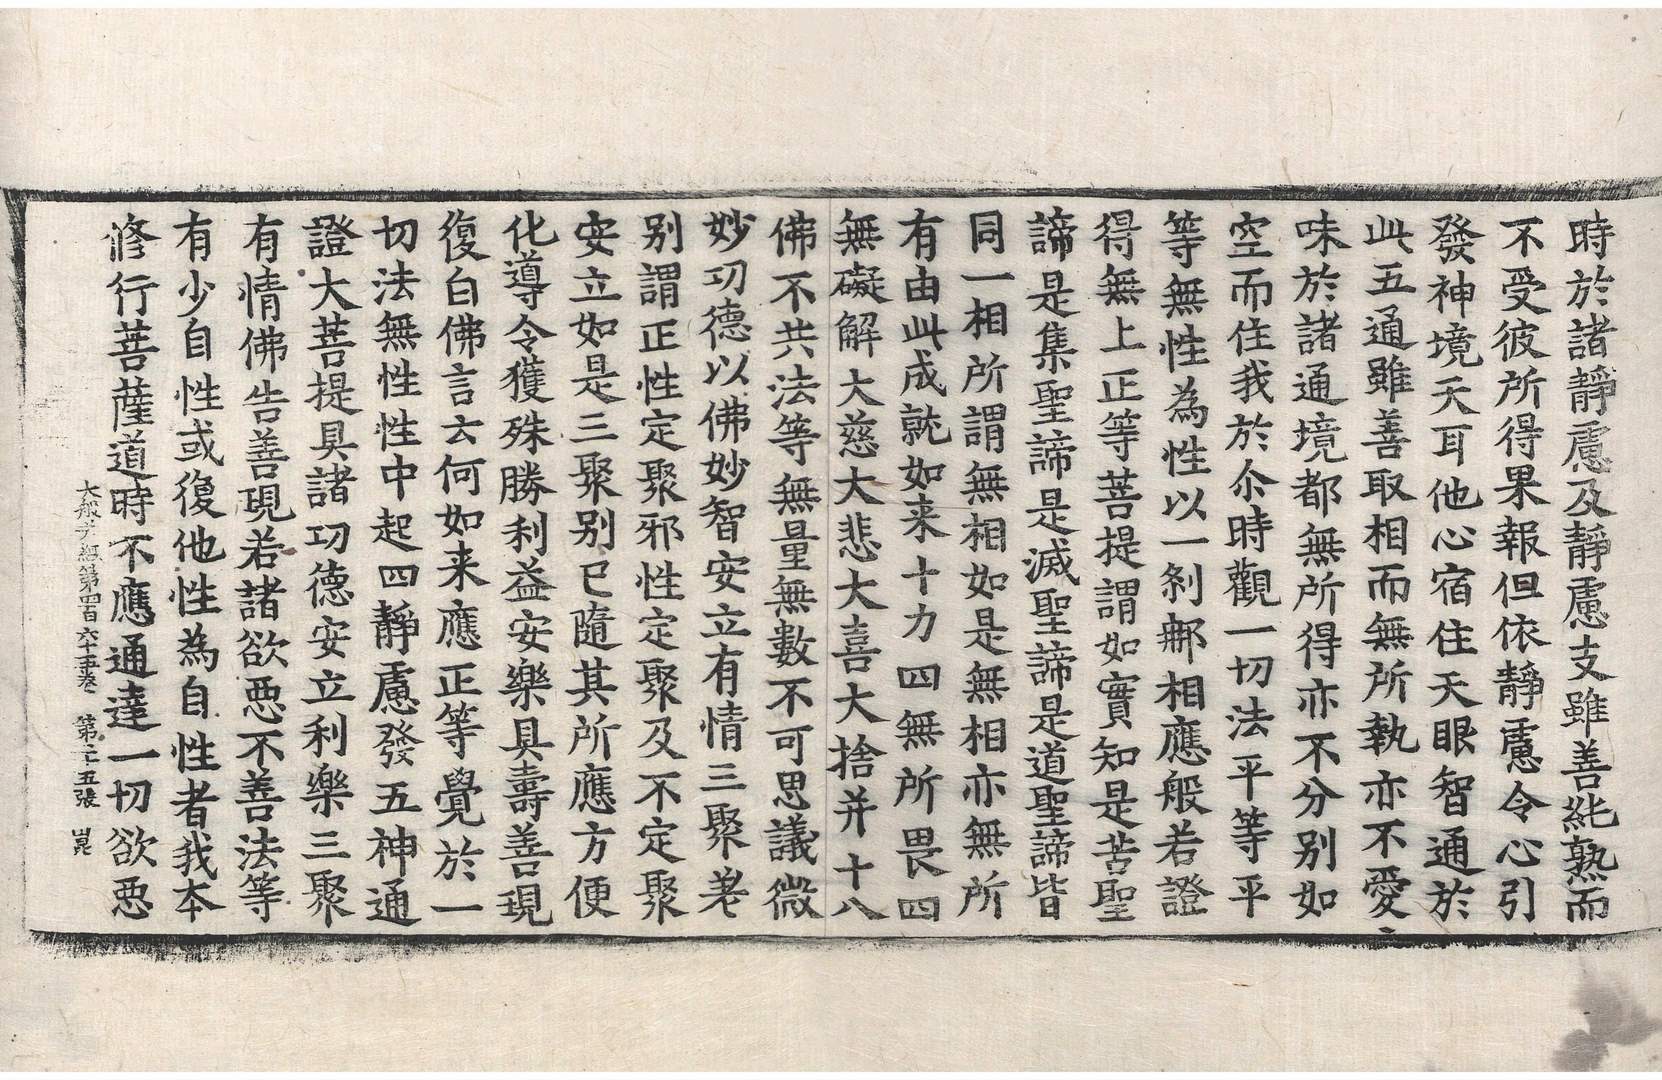 時於諸靜慮及靜慮支雖善純熟而
不受彼所得果報但依靜慮令心引
發神境天耳他心宿住天眼智通於
此五通雖善取相而無所執亦不愛
味於諸通境都無所得亦不分別如
空而住我於尒時觀一切法平等平
等無性為性以一剎郍相應般若證
得無上正等菩提謂如實知是苦聖
諦是集聖諦是滅聖諦是道聖諦皆
同一相所謂無相如是無相亦無所
有由此成就如来十力四無所畏四
無礙解大慈大悲大喜大捨并十八
佛不共法等無量無數不可思議微
妙功德以佛妙智安立有情三聚差
别謂正性定聚邪性定聚及不定聚
安立如是三聚别已隨其所應方便
化導令獲殊勝利益安樂具壽善現
復白佛言云何如来應正等覺於一
切法無性性中起四靜慮發五神通
證大菩提具諸功德安立利樂三聚
有情佛告善現若諸欲惡不善法等
有少自性或復他性為自性者我本
修行菩薩道時不應通達一切欲惡
大般若經第四百六十五卷 第二十五張 崑